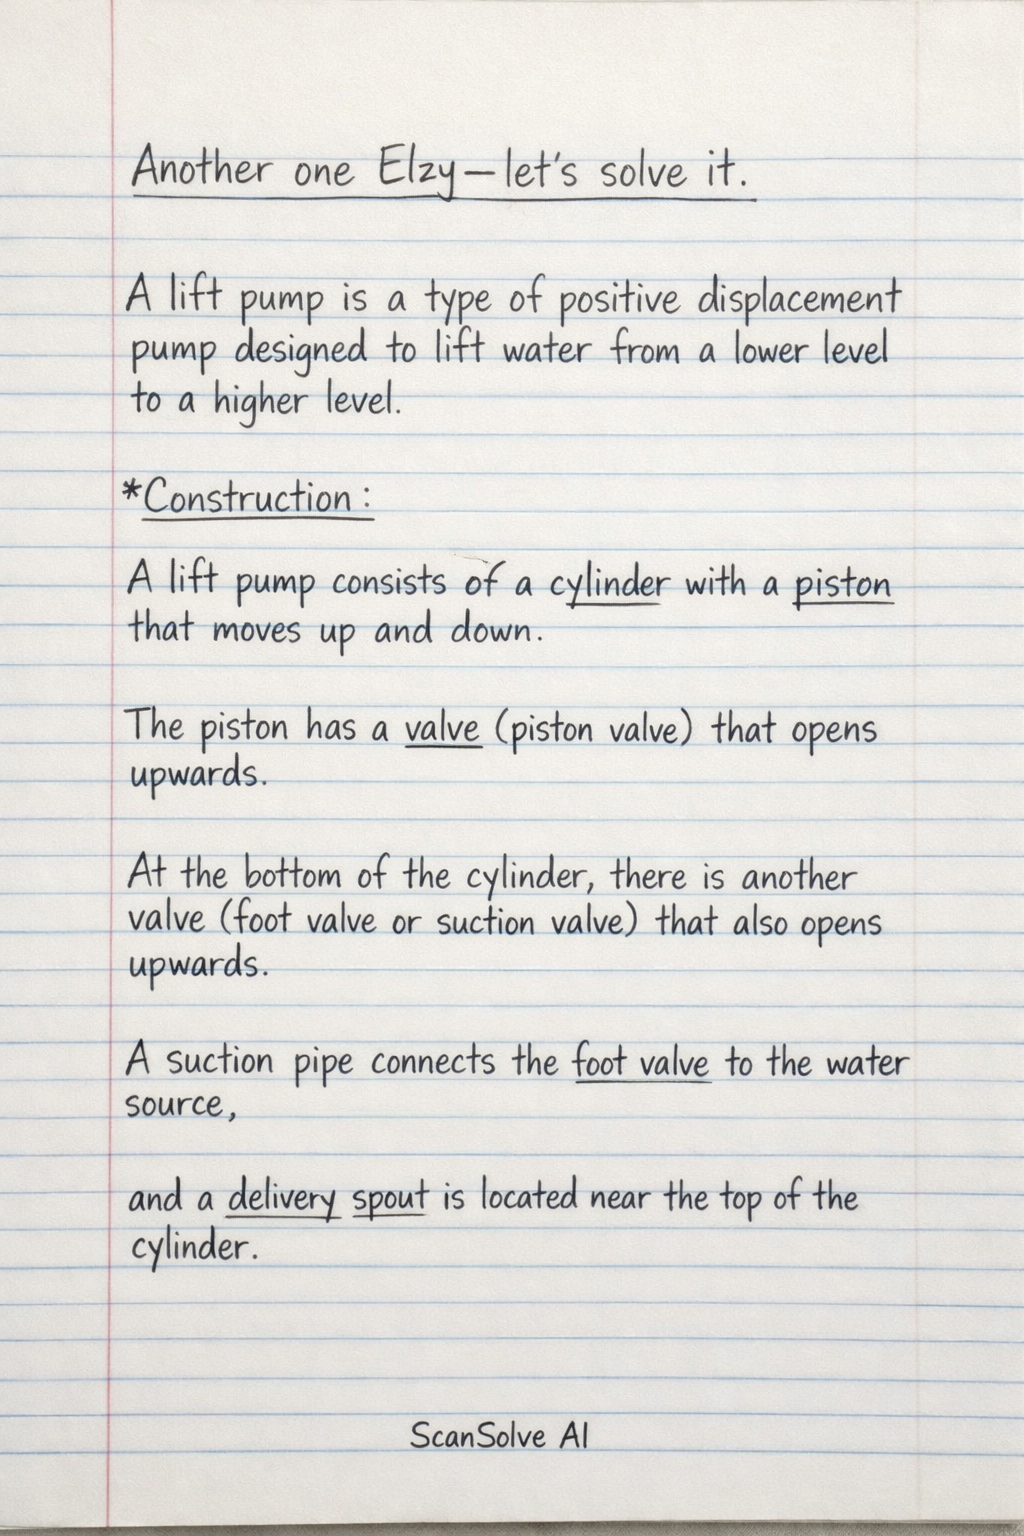 Another one Elzy—let's solve it.
A lift pump is a type of positive displacement
pump designed to lift water from a lower level
to a higher level.
*Construction:
A lift pump consists of a cylinder with a piston
that moves up and down.
The piston has a valve (piston valve) that opens
upwards.
At the bottom of the cylinder, there is another
valve (foot valve or suction valve) that also opens
upwards.
A suction pipe connects the foot valve to the water
source,
and a delivery spout is located near the top of the
cylinder.
ScanSolve AI